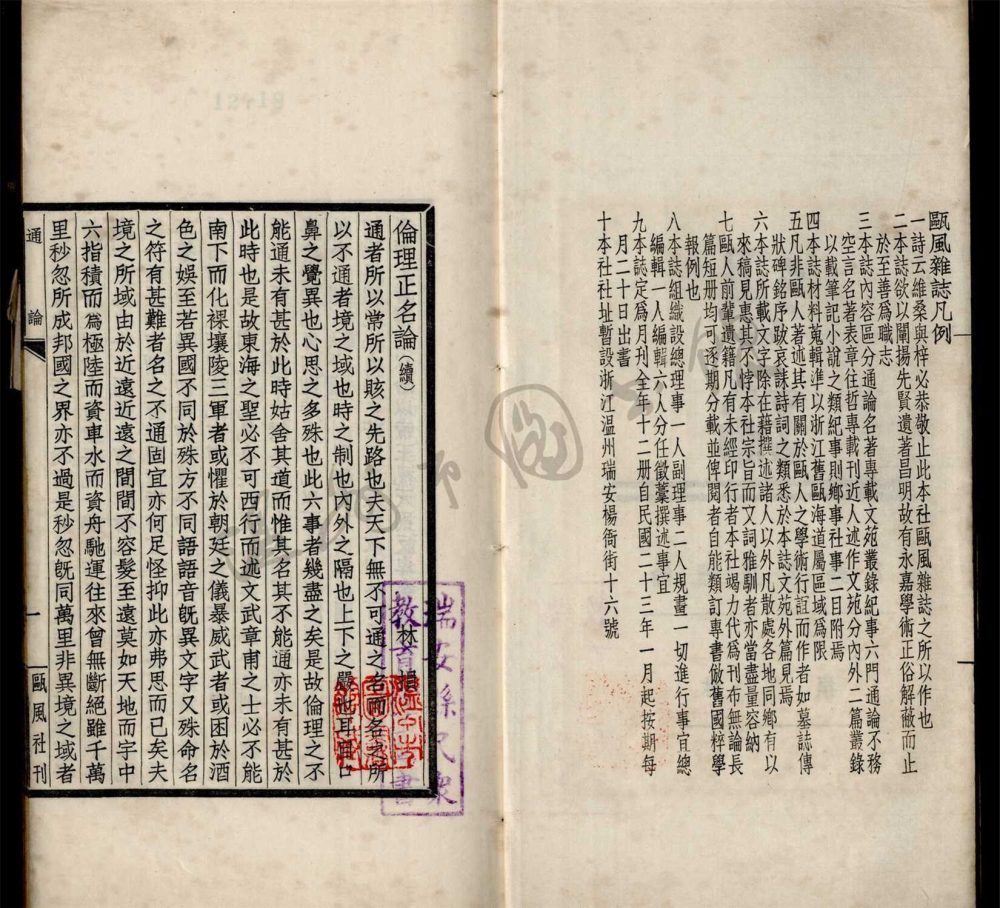 甌風雜誌凡例
一詩云維桑與梓必恭敬止此本社甌風雜誌之所以作也
二本誌欲以闡揚先賢遺著昌明故有永嘉學術正俗解蔽而止
於至善爲職志
三本誌內容區分通論名著專載文苑叢錄紀事六門通論不務
空言名著表章往哲專載刊近人述作文苑分內外二篇叢錄
以載筆記小說之類紀事則鄉事社事二目附焉
四本誌材料蒐輯準以浙江舊甌海道屬區域爲限
五凡非甌人著述其有關於甌人之學術行誼而作者如墓誌傳
狀碑銘序跋哀誄詩詞之類悉於本誌文苑外篇見焉
六本誌所載文字除在藉撰述諸人以外凡散處各地同鄉有以
來稿見惠其不悖本社宗旨而文詞雅馴者亦當盡量容納
七甌人前輩遺籍凡有未經印行者本社竭力代爲刊布無論長
篇短册均可逐期分載並俾閱者自能類訂專書倣舊國粹學
報例也
八本誌組織設總理事一人副理事二人規畫一切進行事宜總
編輯一人編輯六人分任徵藁撰述事宜
九本誌定爲月刊全年十二册自民國二十三年一月起按期每
月二十日出書
十本社社址暫設浙江温州瑞安楊衙街十六號
倫理正名論(續)
林損
通者所以常所以賅之先路也夫天下無不可通之名而各之所
以不通者境之域也時之制也內外之隔也上下之嚴也耳目口
鼻之覺異也心思之多殊也此六事者幾盡之矣是故倫理之不
能通未有甚於此時姑舍其道而惟其名其不能通亦未有甚於
此時也是故東海之聖必不可西行而述文武章甫之士必不能
南下而化裸壤陵三軍者或懼於朝廷之儀暴威武者或困於酒
色之娛至若異國不同於殊方不同語語音旣異文字又殊命名
之符有甚難者名之不通固宜亦何足怪抑此亦弗思而已矣夫
境之所域由於近遠近遠之間間不容髮至遠莫如天地而宇中
六指積而爲極陸而資車水而資舟馳運往來曾無斷絕雖千萬
里秒忽所成邦國之界亦不過是秒忽旣同萬里非異境之域者
通 論
一
甌風社刊
瑞安縣民衆
教育館圖書